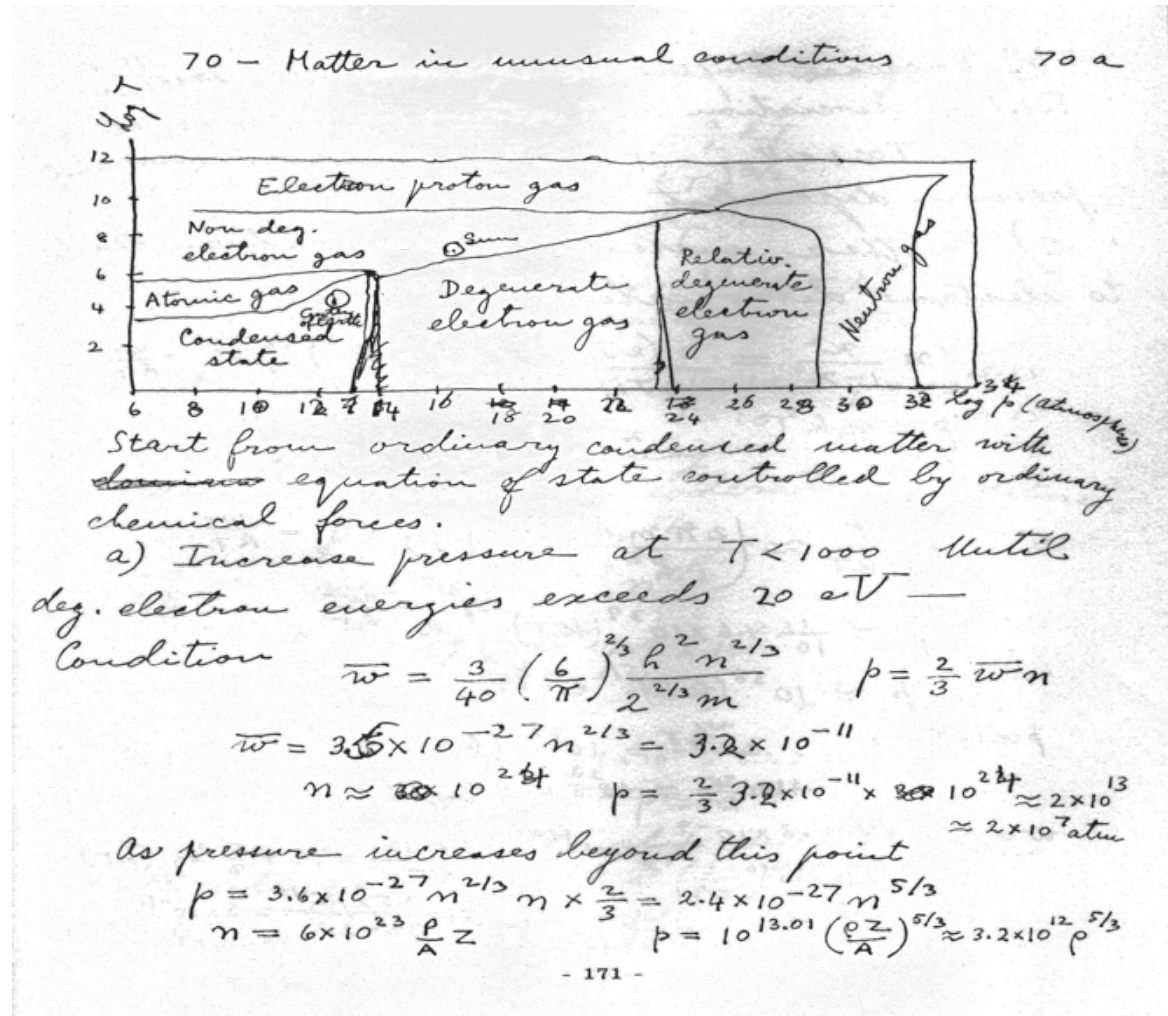 70 — Matter in unusual conditions 70 a
Log T
12
Electron proton gas
10
Non deg.
electron gas
8
Sun
Relativ.
degenerate
electron
gas
Neutron gas
6
Atomic gas
Degenerate
electron gas
4
Center
of earth
Condensed
state
2
6 8 10 12 14 16 18 20 22 24 26 28 30 32 34 Log p (Atmospheres)
Start from ordinary condensed matter with
equation of state controlled by ordinary
chemical forces.
a) Increase pressure at T < 1000 Until
deg. electron energies exceeds 20 eV —
Condition w̄ = 3/40 (6/π)^2/3 h² n^2/3 / 2^2/3 m p = 2/3 w̄ n
w̄ = 3.6 × 10^-27 n^2/3 = 3.2 × 10^-11
n ≈ 10^24 p = 2/3 3.2 × 10^-11 × 10^24 ≈ 2 × 10^13
≈ 2 × 10^7 atm
As pressure increases beyond this point
p = 3.6 × 10^-27 n^2/3 n × 2/3 = 2.4 × 10^-27 n^5/3
n = 6 × 10^23 ρ/A Z p = 10^13.01 (ρZ/A)^5/3 ≈ 3.2 × 10^12 ρ^5/3
- 171 -